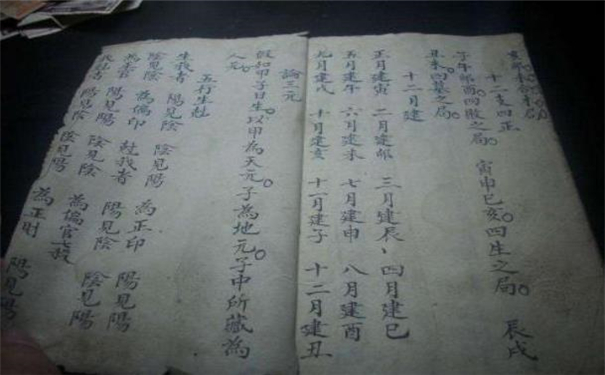 十二支四正
子午卯酉。四敗之局。寅申巳亥。四生之局。辰戌
丑未。四墓之局。
十二月建
正月建寅 二月建卯 三月建辰、四月建巳
五月建午 六月建未 七月建申 八月建酉
九月建戌 十月建亥 十一月建子 十二月建丑
論三元
假如甲子日生。以甲為天元。子為地元。子中所藏為
人元。
五行生尅
生我者 陽見陰 陰見陽 為正印 陽見陽
陰見陰 為偏印 尅我者 陽見陰 陰見陽
為正官 陽見陽 陰見陰 為偏官七殺
我尅者 陽見陰 陰見陽 為正財 陽見陽